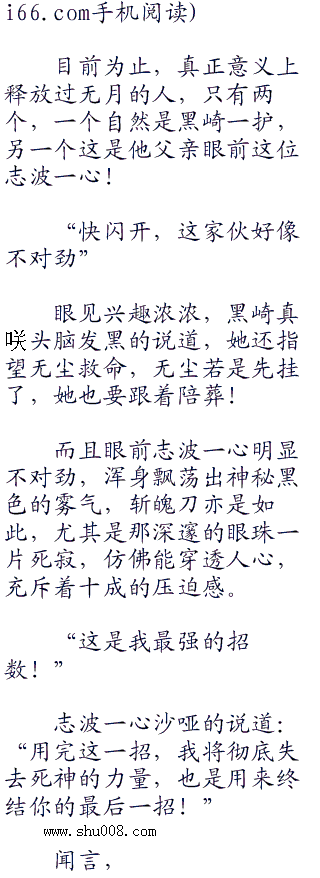 i66.com手机阅读)
目前为止，真正意义上
释放过无月的人，只有两
个，一个自然是黑崎一护，
另一个这是他父亲眼前这位
志波一心！
“快闪开，这家伙好像
不对劲”
眼见兴趣浓浓，黑崎真
咲头脑发黑的说道，她还指
望无尘救命，无尘若是先挂
了，她也要跟着陪葬！
而且眼前志波一心明显
不对劲，浑身飘荡出神秘黑
色的雾气，斩魄刀亦是如
此，尤其是那深邃的眼珠一
片死寂，仿佛能穿透人心，
充斥着十成的压迫感。
“这是我最强的招
数！”
志波一心沙哑的说道：
“用完这一招，我将彻底失
去死神的力量，也是用来终
结你的最后一招！”
www.shu008.com
闻言，